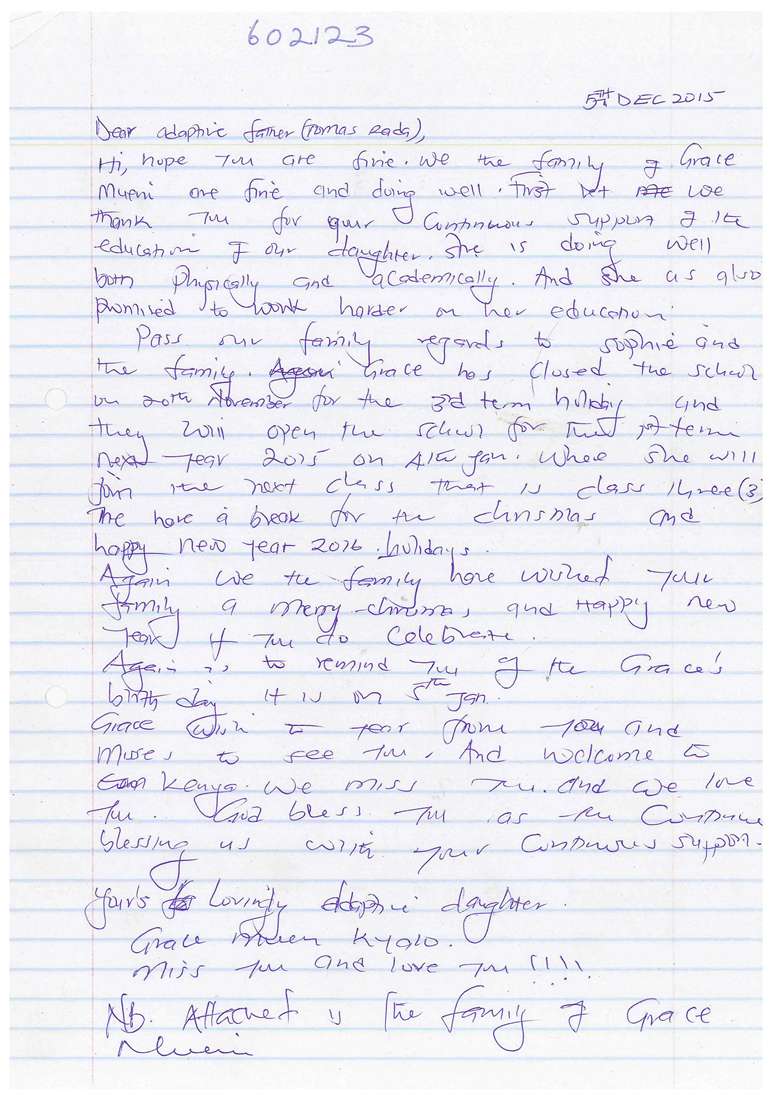 602123
5TH DEC 2015
Dear adaptive father (Tomas Rada),
Hi, hope you are fine. We the family of Grace
Mueni are fine and doing well. First let me we
thank you for your continuous support of the
education of our daughter. She is doing well
both physically and academically. And she as also
promised to work harder on her education.
Pass our family regards to Sophie and
the family. Again Grace has closed the school
on 20th November for the 3rd term holiday and
they will open the school for their 1st term
next year 2015 on 4th Jan. Where she will
join the next class that is class three (3)
The have a break for the chrismas and
happy new year 2016 holidays.
Again we the family have wished your
family a merry chrismas, and Happy new
Year if you do celebrate.
Again is to remind you of the Grace's
birth day it is on 5th Jan.
Grace wish to year from you and
misses to see you. And welcome to
Kenya. We miss you. and we love
you. God bless you as you continue
blessing us with your continuous support.
Your's lovingly adaptive daughter.
Grace Mueni Kyalo.
Miss you and love you !!!!
Nb. Attached is the family of Grace
Mueni